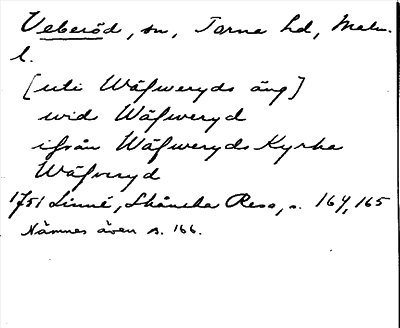 Veberöd, sn, Torna hd, Malm.
l.
[uti Wäfweryds äng]
wid Wäfweryd
ifrån Wäfweryds Kyrka
Wäfveryd
1751 Linné, Skånska Resa, s. 164, 165
Nämnes även s. 166.